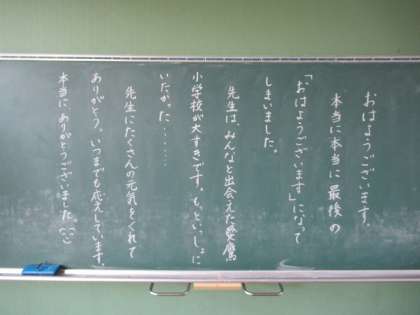 おはようございます。
本当に本当に最後の
「おはようございます」になって
しまいました。
先生は、みんなと出会えた愛鷹
小学校が大すきです。もっといっしょに
いたかった………
先生にたくさんの元気をくれて
ありがとう。いつまでも応えんしています。
本当に、ありがとうございました。